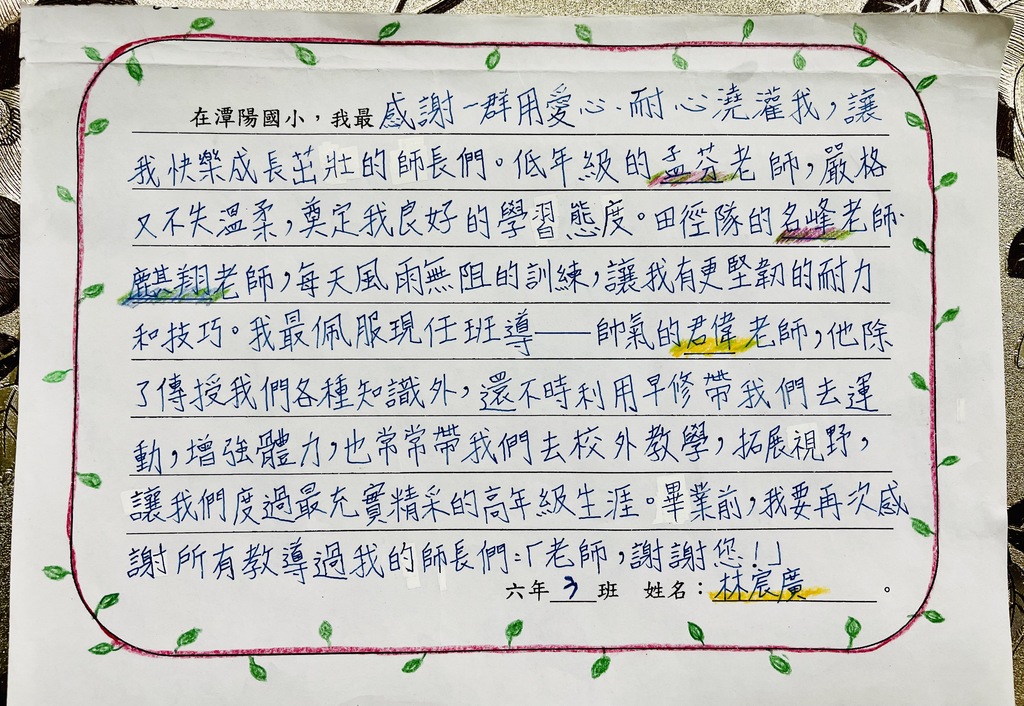 在潭陽國小，我最感謝一群用愛心、耐心澆灌我，讓
我快樂成長茁壯的師長們。低年級的孟芬老師，嚴格
又不失溫柔，奠定我良好的學習態度。田徑隊的名峰老師、
麒翔老師，每天風雨無阻的訓練，讓我有更堅韌的耐力
和技巧。我最佩服現任班導——帥氣的君偉老師，他除
了傳授我們各種知識外，還不時利用早修帶我們去運
動，增強體力，也常常帶我們去校外教學，拓展視野，
讓我們度過最充實精采的高年級生涯。畢業前，我要再次感
謝所有教導過我的師長們：「老師，謝謝您！」
六年3班 姓名：林宸廣。